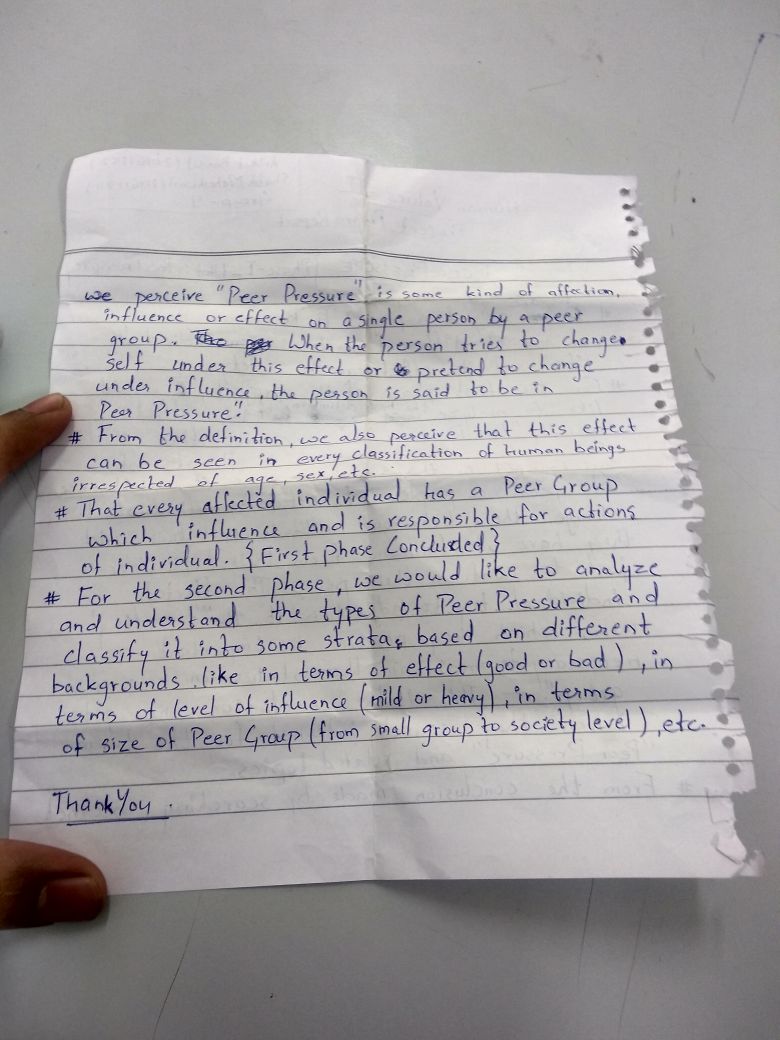 we perceive "Peer Pressure" is some kind of affection,
influence or effect on a single person by a peer
group. When the person tries to change
self under this effect or pretend to change
under influence, the person is said to be in
Peer Pressure".
# From the definition, we also perceive that this effect
can be seen in every classification of human beings
irrespected of age, sex, etc.
# That every affected individual has a Peer Group
which influence and is responsible for actions
of individual. {First phase Concluded}
# For the second phase, we would like to analyze
and understand the types of Peer Pressure and
classify it into some strata, based on different
backgrounds like in terms of effect (good or bad), in
terms of level of influence (mild or heavy), in terms
of size of Peer Group (from small group to society level), etc.
Thank You.